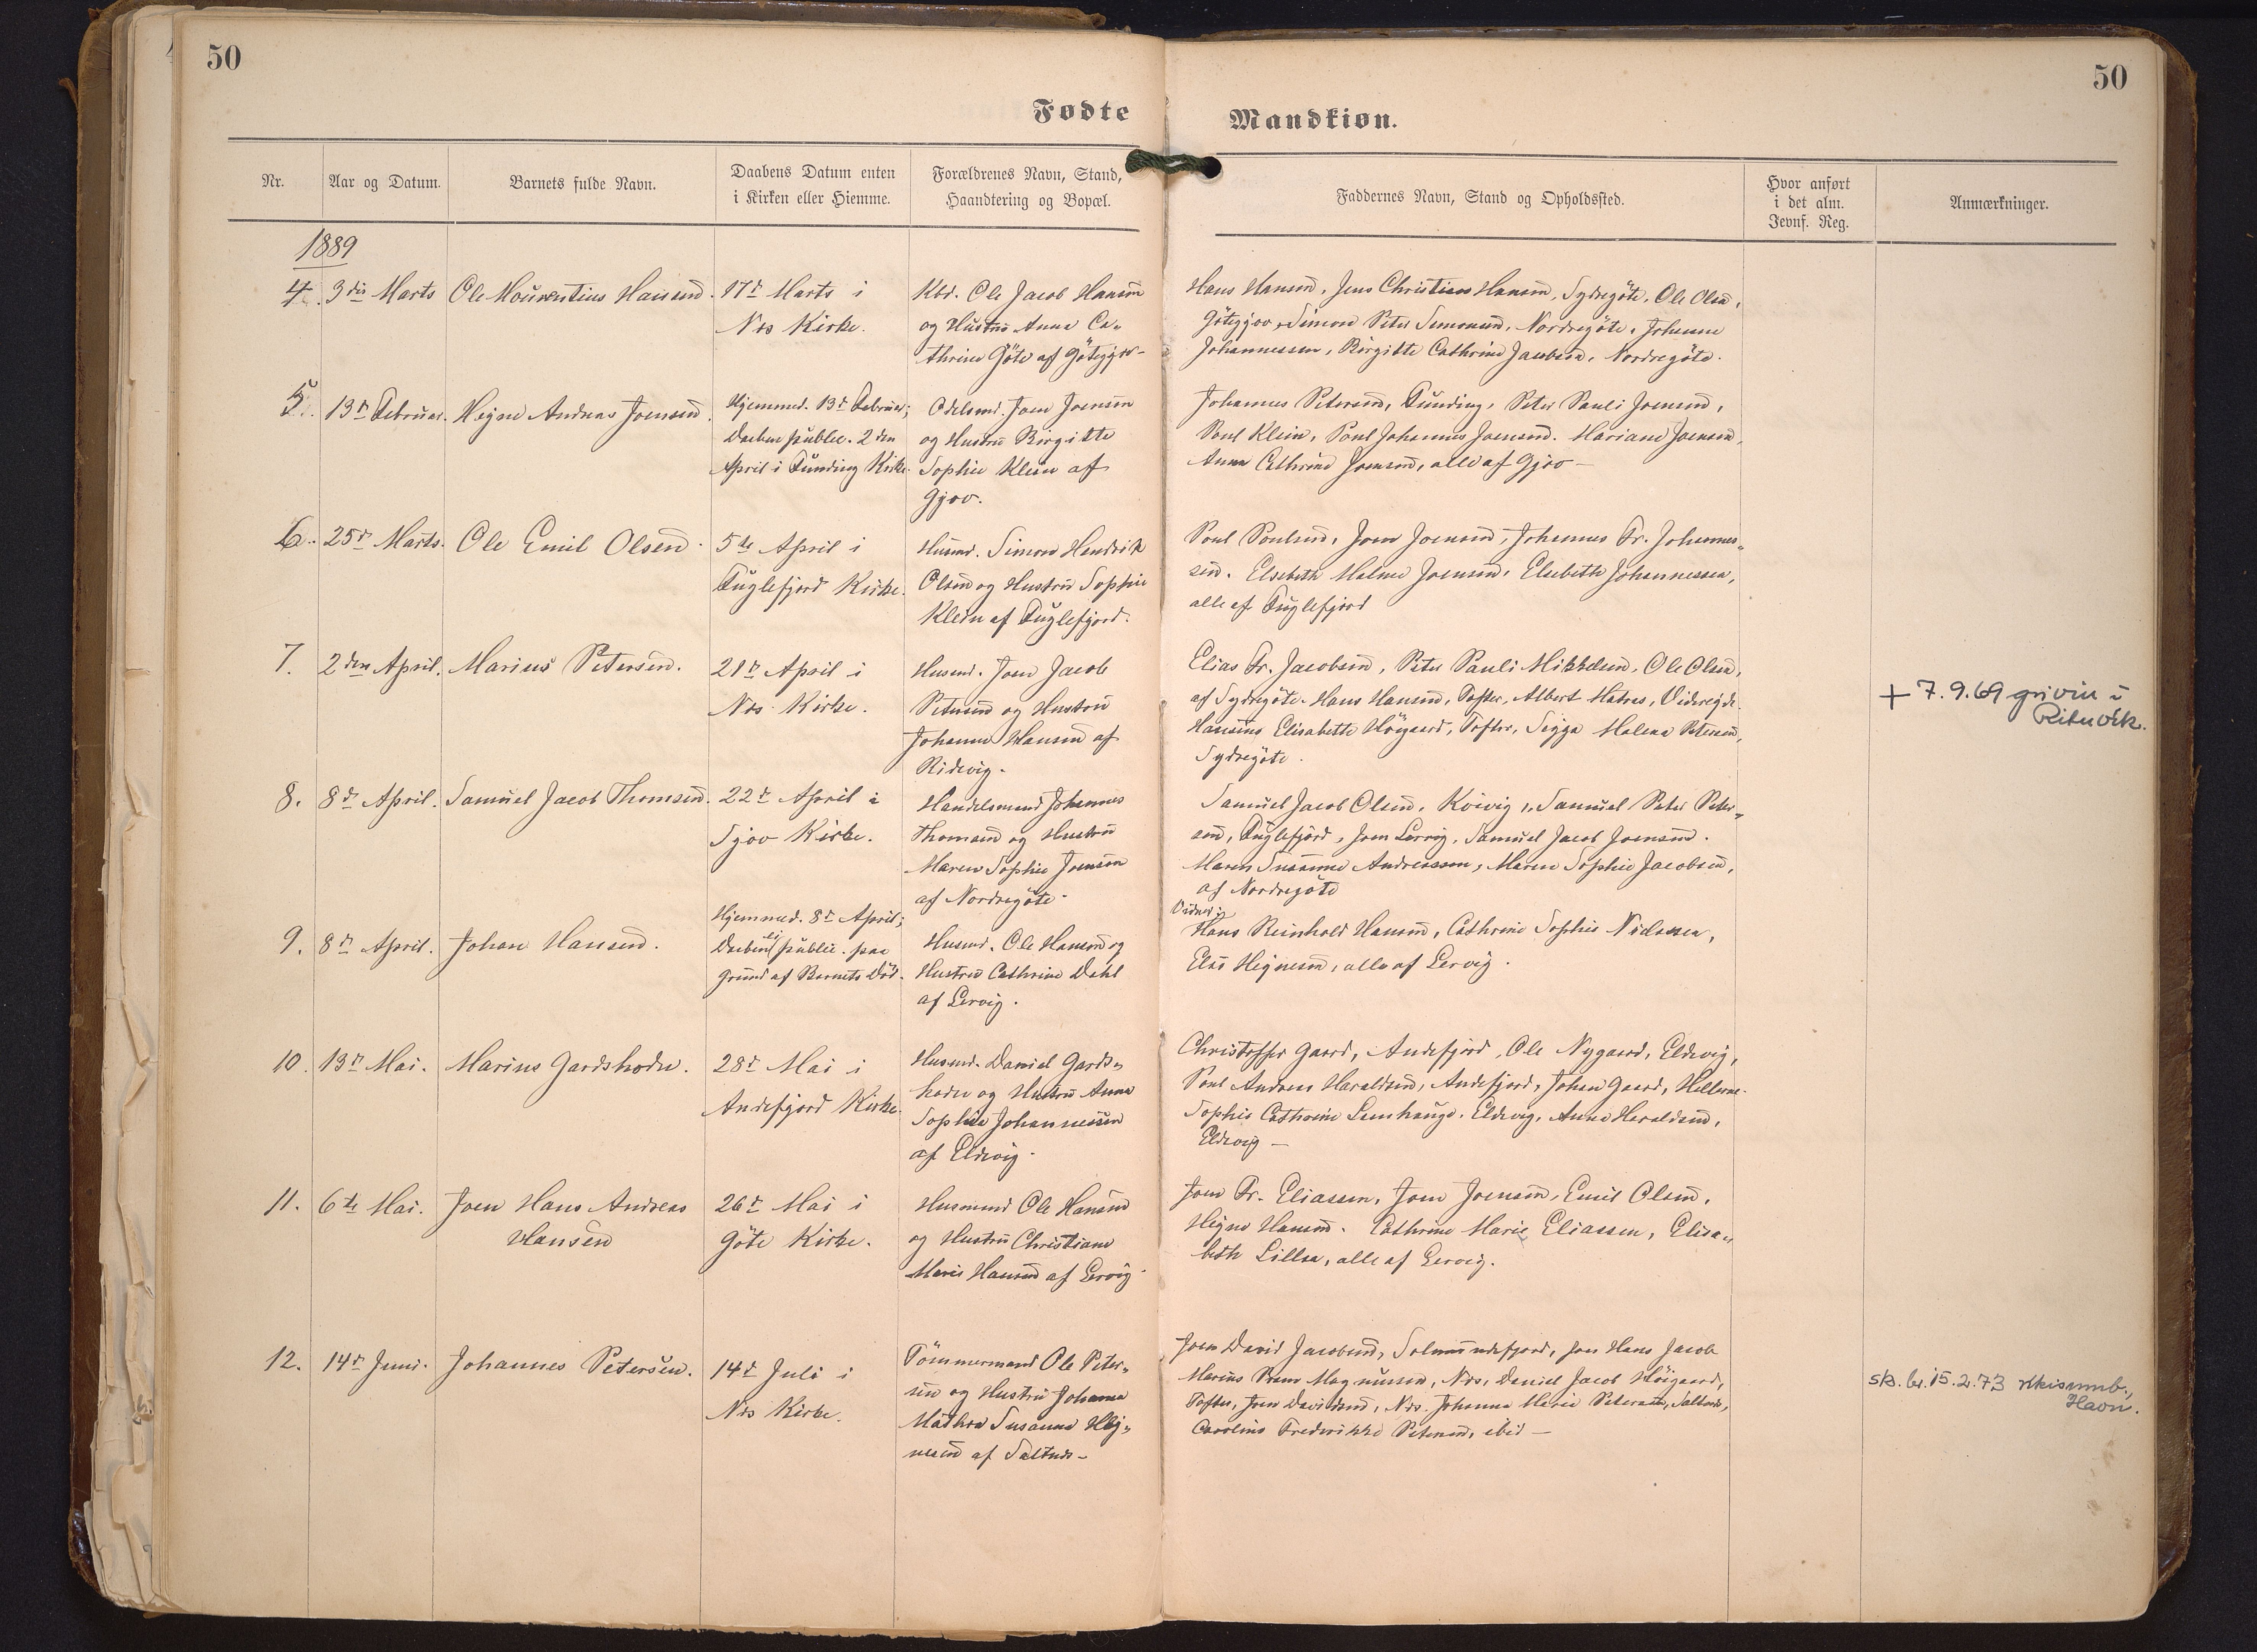 50
50
Fødte
Mandkiøn.
Nr.
Aar og Datum.
Barnets fulde Navn.
Daabens Datum enten
i Kirken eller Hiemme.
Forældrenes Navn, Stand,
Haandtering og Bopæl.
Faddernes Navn, Stand og Opholdssted.
Hvor anført
i det alm.
Jevnf. Reg.
Anmærkninger.
1889
4. 3die Marts
Ole Mourentius Hansen.
17d Marts i
Nes Kirke.
Kbd. Ole Jacob Hansen
og Hustru Anna Ca-
thrine Göte af Götegjov-
Hans Hansen, Jens Christian Hansen, Sydregöte, Ole Olsen,
Götegjov, Simon Peter Simonsen, Nordregöte, Johanne
Johannessen, Birgitte Cathrine Jacobsen, Nordregöte.
5. 13d Februar.
Hejne Andreas Joensen.
Hjemmed. 13d Februar;
Daaben public. 2den
April i Funding Kirke.
Odelsmd. Joen Joensen
og Hustru Birgitte
Sophie Klein af
Gjov.
Johannes Petersen, Funding, Peter Pauli Joensen,
Poul Klein, Poul Johannes Joensen. Mariane Joensen,
Anna Cathrine Joensen, alle af Gjov-
6. 25d Marts.
Ole Emil Olsen.
5te April i
Fuglefjord Kirke.
Husmd. Simon Hendrik
Olsen og Hustru Sophie
Klein af Fuglefjord.
Poul Poulsen, Joen Joensen, Johannes Fr. Johannes-
sen. Elsebeth Malene Joensen, Elsebeth Johannessen,
alle af Fuglefjord
7. 2den April.
Marius Petersen.
21d April i
Nes Kirke.
Husmd. Joen Jacob
Petersen og Hustru
Johanne Hansen af
Ridevig.
Elias Fr. Jacobsen, Peter Pauli Mikkelsen, Ole Olsen,
af Sydregöte. Hans Hansen, Tofter, Albert Hatres, Videregde.
Hansine Elisabeth Höjgaard, Tofter, Sigga Malena Petersen,
Sydregöte.
+ 7.9.69 grivin i
Rituvík.
8. 8d April.
Samuel Jacob Thomsen.
22d April i
Sjov Kirke.
Handelsmand Johannes
Thomsen og Hustru
Maren Sophie Joensen
af Nordregöte.
Samuel Jacob Olsen, Kvivig, Samuel Peter Peter-
sen, Fuglefjord, Joen Lervig, Samuel Jacob Joensen.
Maren Susanne Andreassen, Maren Sophie Jacobsen,
af Nordregöte
9. 8d April.
Johan Hansen.
Hjemmed. 8d April;
Daaben ej public. paa
Grund af Barnets Död.
Husmd. Ole Hansen og
Hustru Cathrine Dahl
af Lervig.
Vidner:
Hans Reinhold Hansen, Cathrine Sophie Niclasen,
Else Hejnesen, alle af Lervig.
10. 13d Mai.
Marius Gardshodn.
28d Mai i
Andefjord Kirke.
Husmd. Daniel Gards-
hodn og Hustru Anna
Sophie Johannessen
af Eldevig.
Christoffer Gaard, Andefjord, Ole Nygaard, Eldevig,
Poul Andreas Haraldsen, Andefjord, Johan Gaard, Hellerne.
Sophie Cathrine Lamhauge, Eldevig, Anna Haraldsen,
Eldevig-
11. 6te Mai.
Joen Hans Andreas
Hansen
26d Mai i
Göte Kirke.
Husmand Ole Hansen
og Hustru Christiane
Marie Hansen af Lervig.
Joen Fr. Eliassen, Joen Joensen, Emil Olsen,
Hejne Hansen. Cathrine Marie Eliassen, Elisa-
beth Lillsa, alle af Lervig.
12. 14d Juni.
Johannes Petersen.
14d Juli i
Nes Kirke.
Tömmermand Ole Peter-
sen og Hustru Johanna
Mathea Susanna Hej-
nesen af Saltnes-
Joen David Jacobsen, Solmundefjord, Joen Hans Jacob
Marius Magnussen, Nes, Daniel Jacob Höjgaard,
Tofter, Joen Davidsen, Nes. Johanna Marie Petersen, Saltnes,
Caroline Frederikke Petersen, ibid-
sk. br. 15.2.73 rkisumb.,
Havn.